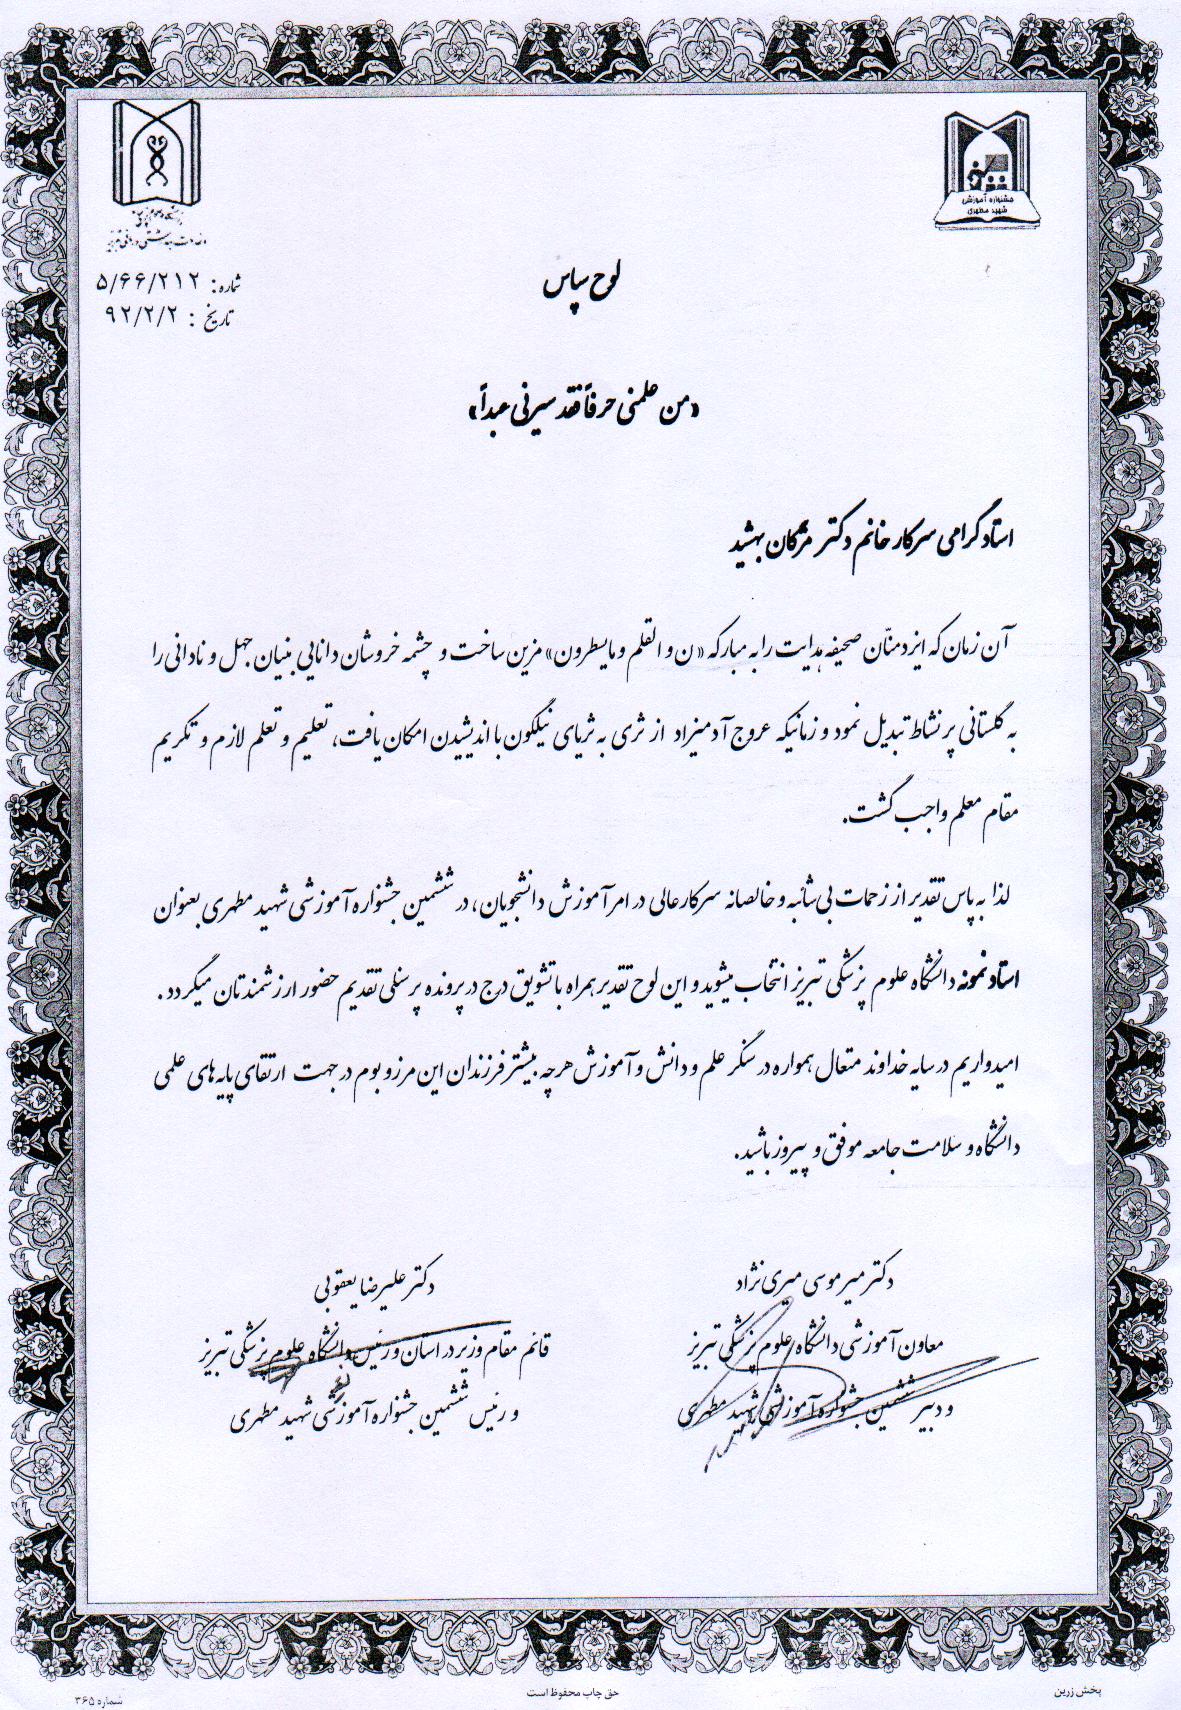 جشنواره آموزش
شهید مطهری
شماره: ۵/۶۶/۲۱۲
تاریخ : ۹۲/۲/۲
لوح سپاس
«من علمنی حرفاً فقد سیرنی عبداً»
استاد گرامی سرکار خانم دکتر مژگان بهشید
آن زمان که ایزد منّان صحیفه هدایت را به مبارکه «ن و القلم و مایسطرون» مزین ساخت و چشمه خروشان دانایی بنیان جهل و نادانی را
به گلستانی پر نشاط تبدیل نمود و زمانیکه عروج آدمیزاد از ثری به ثریای نیلگون با اندیشیدن امکان یافت، تعلیم و تعلم لازم و تکریم
مقام معلم واجب گشت.
لذا به پاس تقدیر از زحمات بی شائبه و خالصانه سرکارعالی در امر آموزش دانشجویان، در ششمین جشنواره آموزشی شهید مطهری بعنوان
استاد نمونه دانشگاه علوم پزشکی تبریز انتخاب میشوید و این لوح تقدیر همراه با تشویق درج در پرونده پرسنلی تقدیم حضور ارزشمندتان میگردد.
امیدواریم در سایه خداوند متعال همواره در سنگر علم و دانش و آموزش هرچه بیشتر فرزندان این مرز و بوم در جهت ارتقای پایه های علمی
دانشگاه و سلامت جامعه موفق و پیروز باشید.
دکتر میر موسی میری نژاد
معاون آموزشی دانشگاه علوم پزشکی تبریز
و دبیر ششمین جشنواره آموزشی شهید مطهری
دکتر علیرضا یعقوبی
قائم مقام وزیر در استان و رئیس دانشگاه علوم پزشکی تبریز
و رئیس ششمین جشنواره آموزشی شهید مطهری
پخش زرین
حق چاپ محفوظ است
شماره ۳۶۵